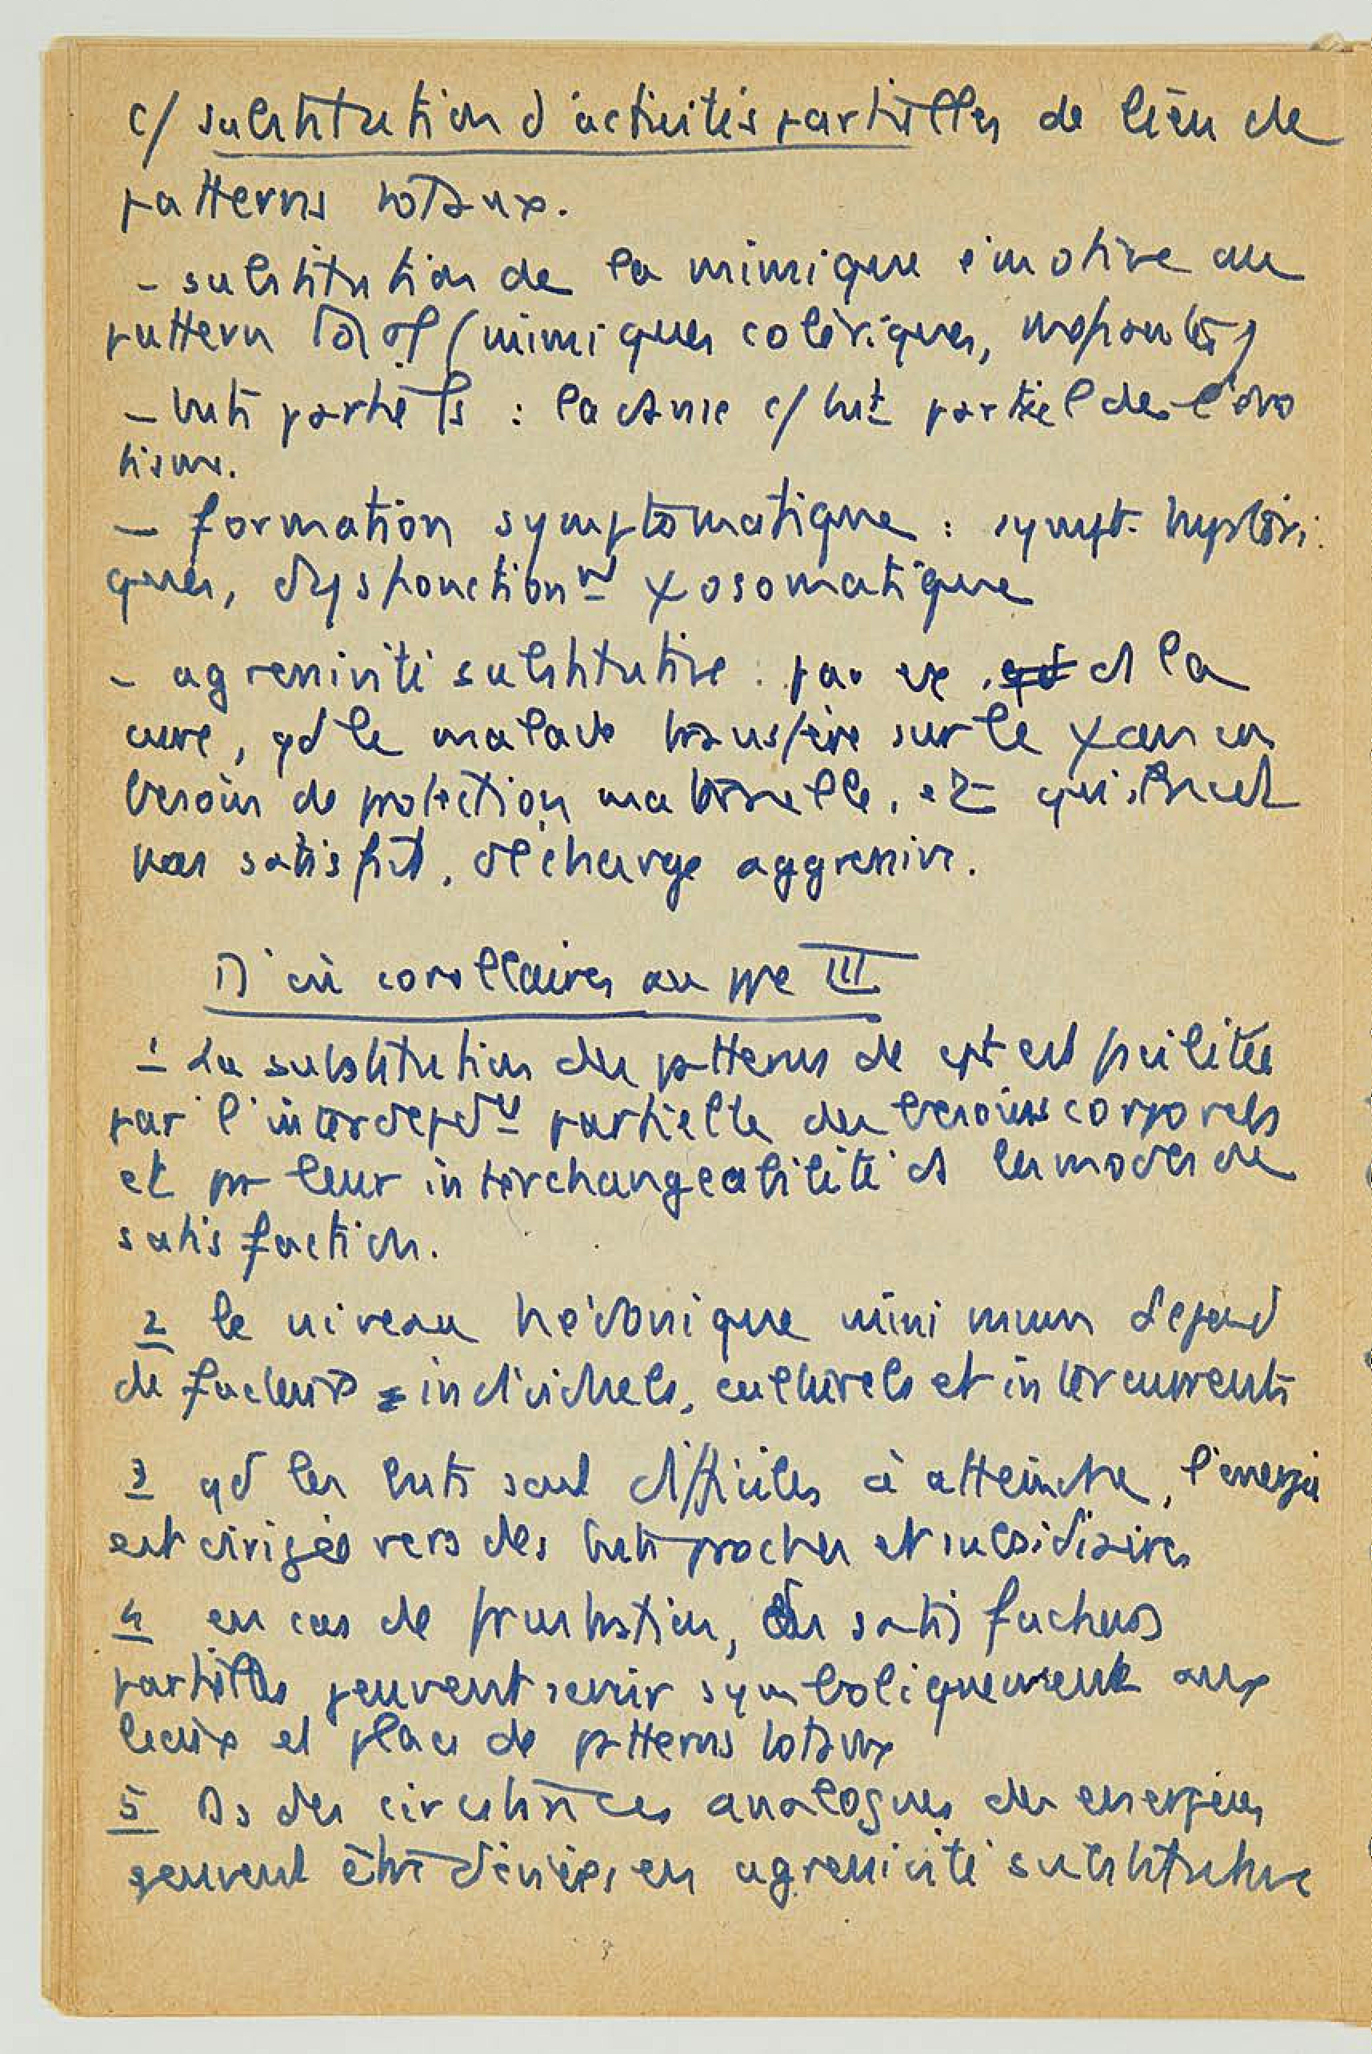 c/ substitution d'activités partielles de lieu de
patterns totaux.
- substitution de la mimique émotive au
pattern total (mimiques colériques,
- buts partiels : la danse c/ but partiel de l'éro
tisme.
- formation symptomatique : sympt. hystéri
ques, dysfonctionnt χosomatique
- agressivité substitutive : par ex. ds la
cure, qd le malade transfère sur le χan un
besoin de protection maternelle, et qui, n'est
pas satisfait, décharge aggressive.
D'où corollaires au ppe III
1 La substitution des patterns de cpt est facilitée
par l'interdépdce partielle des besoins corporels
et par leur interchangeabilité ds les modes de
satisfaction.
2 le niveau hédonique minimum dépend
de facteurs individuels, culturels et intercurrents
3 qd les buts sont difficiles à atteindre, l'énergie
est dirigée vers des buts proches et subsidiaires
4 en cas de frustration, des satisfactions
partielles peuvent servir symboliquement aux
lieux et place de patterns totaux
5 Ds des circonstances analogues des énergies
peuvent être déviées en agressivité substitutive